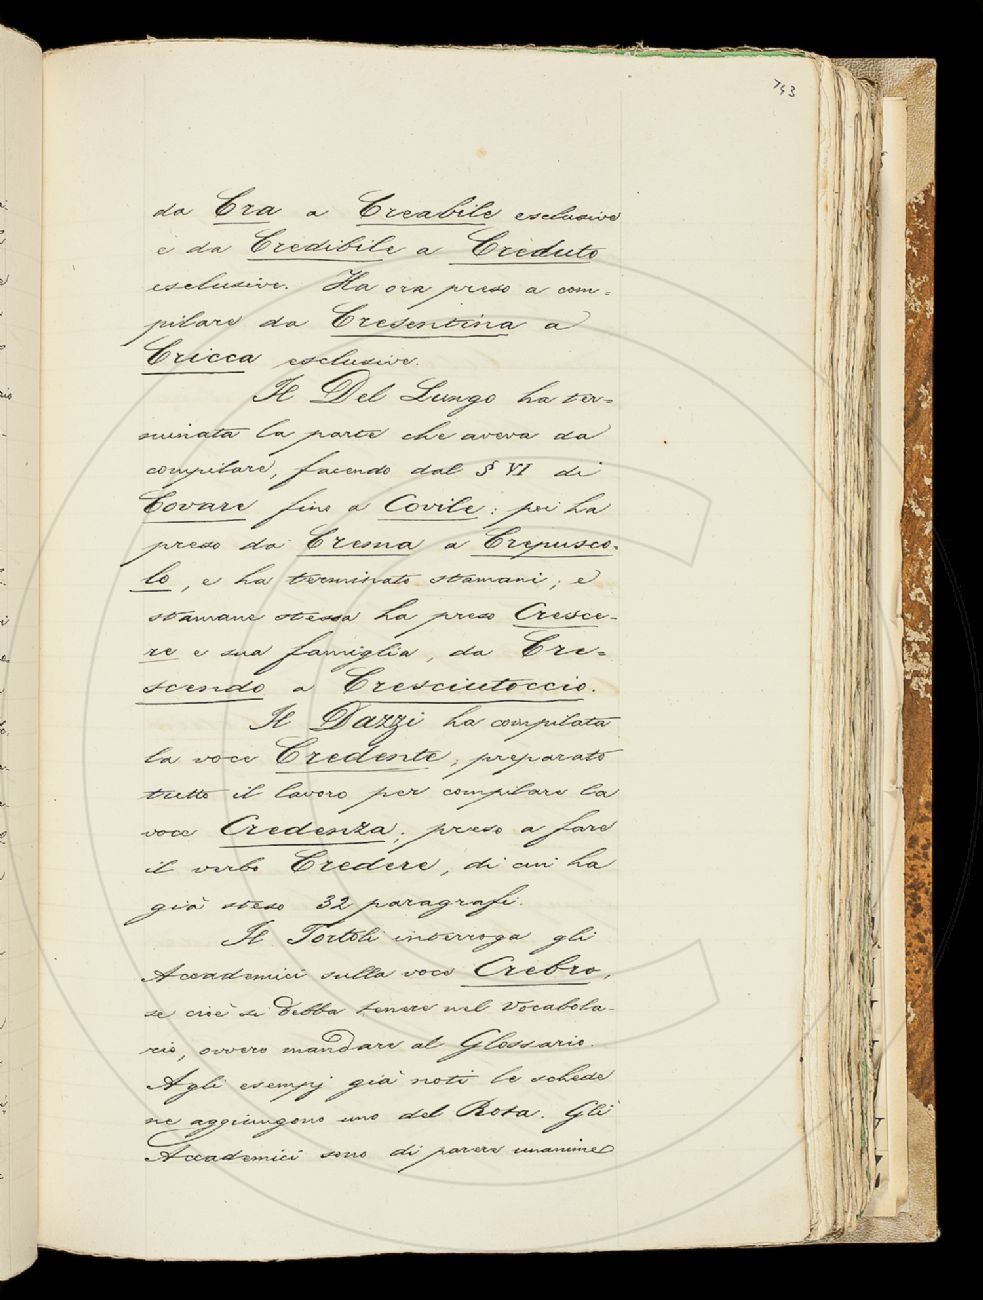 743
da Cra a Creabile esclusive
e da Credibile a Creduto
esclusive. Ha ora preso a com-
pilare da Cresentina a
Cricca esclusive.
Il Del Lungo ha ter-
minata la parte che aveva da
compilare, facendo dal § VI di
Covare fino a Covile; poi ha
preso da Crema a Crepusco-
lo, e ha terminato stamani; e
stamane stessa ha preso Cresce-
re e sua famiglia, da Cre-
scendo a Cresciutoccio.
Il Dazzi ha compilata
la voce Credente; preparato
tutto il lavoro per compilare la
voce Credenza; preso a fare
il verbo Credere, di cui ha
già steso 32 paragrafi.
Il Tortoli interroga gli
Accademici sulla voce Crebro,
se cioè si debba tenere nel Vocabola-
rio, ovvero mandare al Glossario.
Agli esempj già noti le schede
ne aggiungono uno del Rosa. Gli
Accademici sono di parere unanime